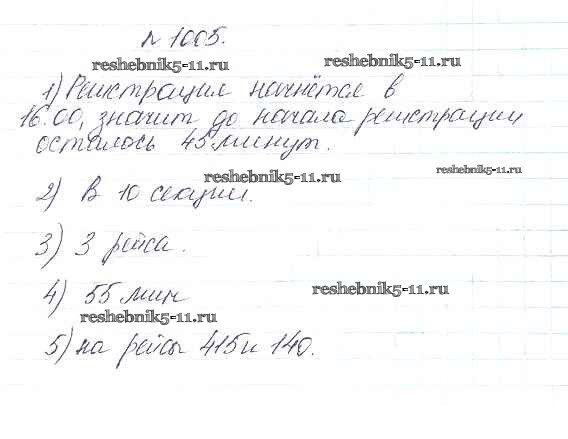 № 1005.
reshebnik5-11.ru reshebnik5-11.ru
1) Регистрация начнётся в
16:00, значит до начала регистрации
осталось 45 минут.
reshebnik5-11.ru reshebnik5-11.ru
2) В 10 секции.
3) 3 рейса.
4) 55 мин
reshebnik5-11.ru
reshebnik5-11.ru
5) на рейсы 415 и 140.